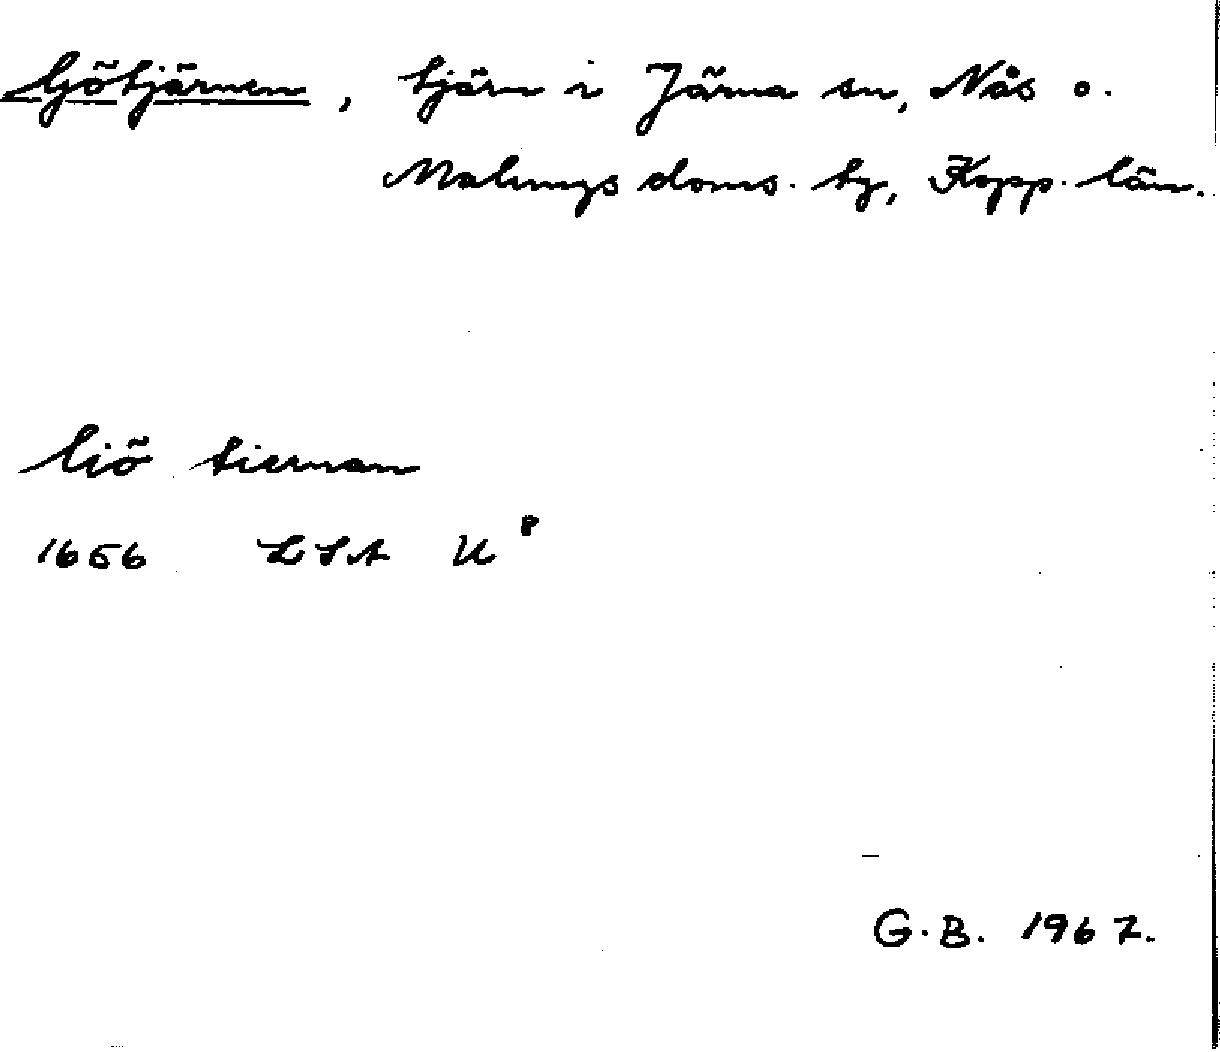 Ljötjärnen, tjärn i Järna sn, Nås o.
Malungs doms. tg, Kopp. län.
liö tiernan
1656 LSA U 8
G.B. 1967.